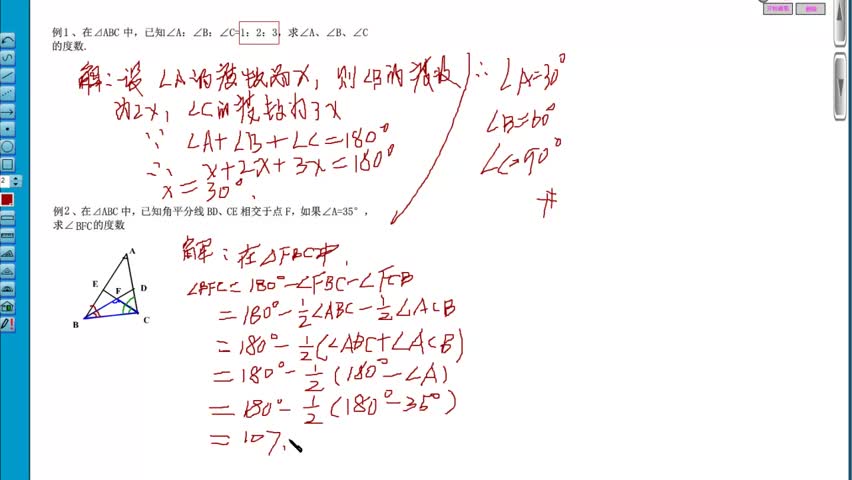 开始画笔 删除
例1、在⊿ABC 中，已知∠A：∠B：∠C=1：2：3，求∠A、∠B、∠C
的度数.
解：设 ∠A的度数为x，则∠B的度数
为2x，∠C的度数为3x
∵ ∠A+∠B+∠C=180°
∴ x+2x+3x=180°
x=30°.
∴ ∠A=30°
∠B=60°
∠C=90°
#
例2、在⊿ABC 中，已知角平分线 BD、CE 相交于点 F，如果∠A=35°，
求∠BFC的度数
A
E
D
F
B
C
解：在△FBC中，
∠BFC=180°-∠FBC-∠FCB
=180°-1/2∠ABC-1/2∠ACB
=180°-1/2(∠ABC+∠ACB)
=180°-1/2(180°-∠A)
=180°-1/2(180°-35°)
=107.
2